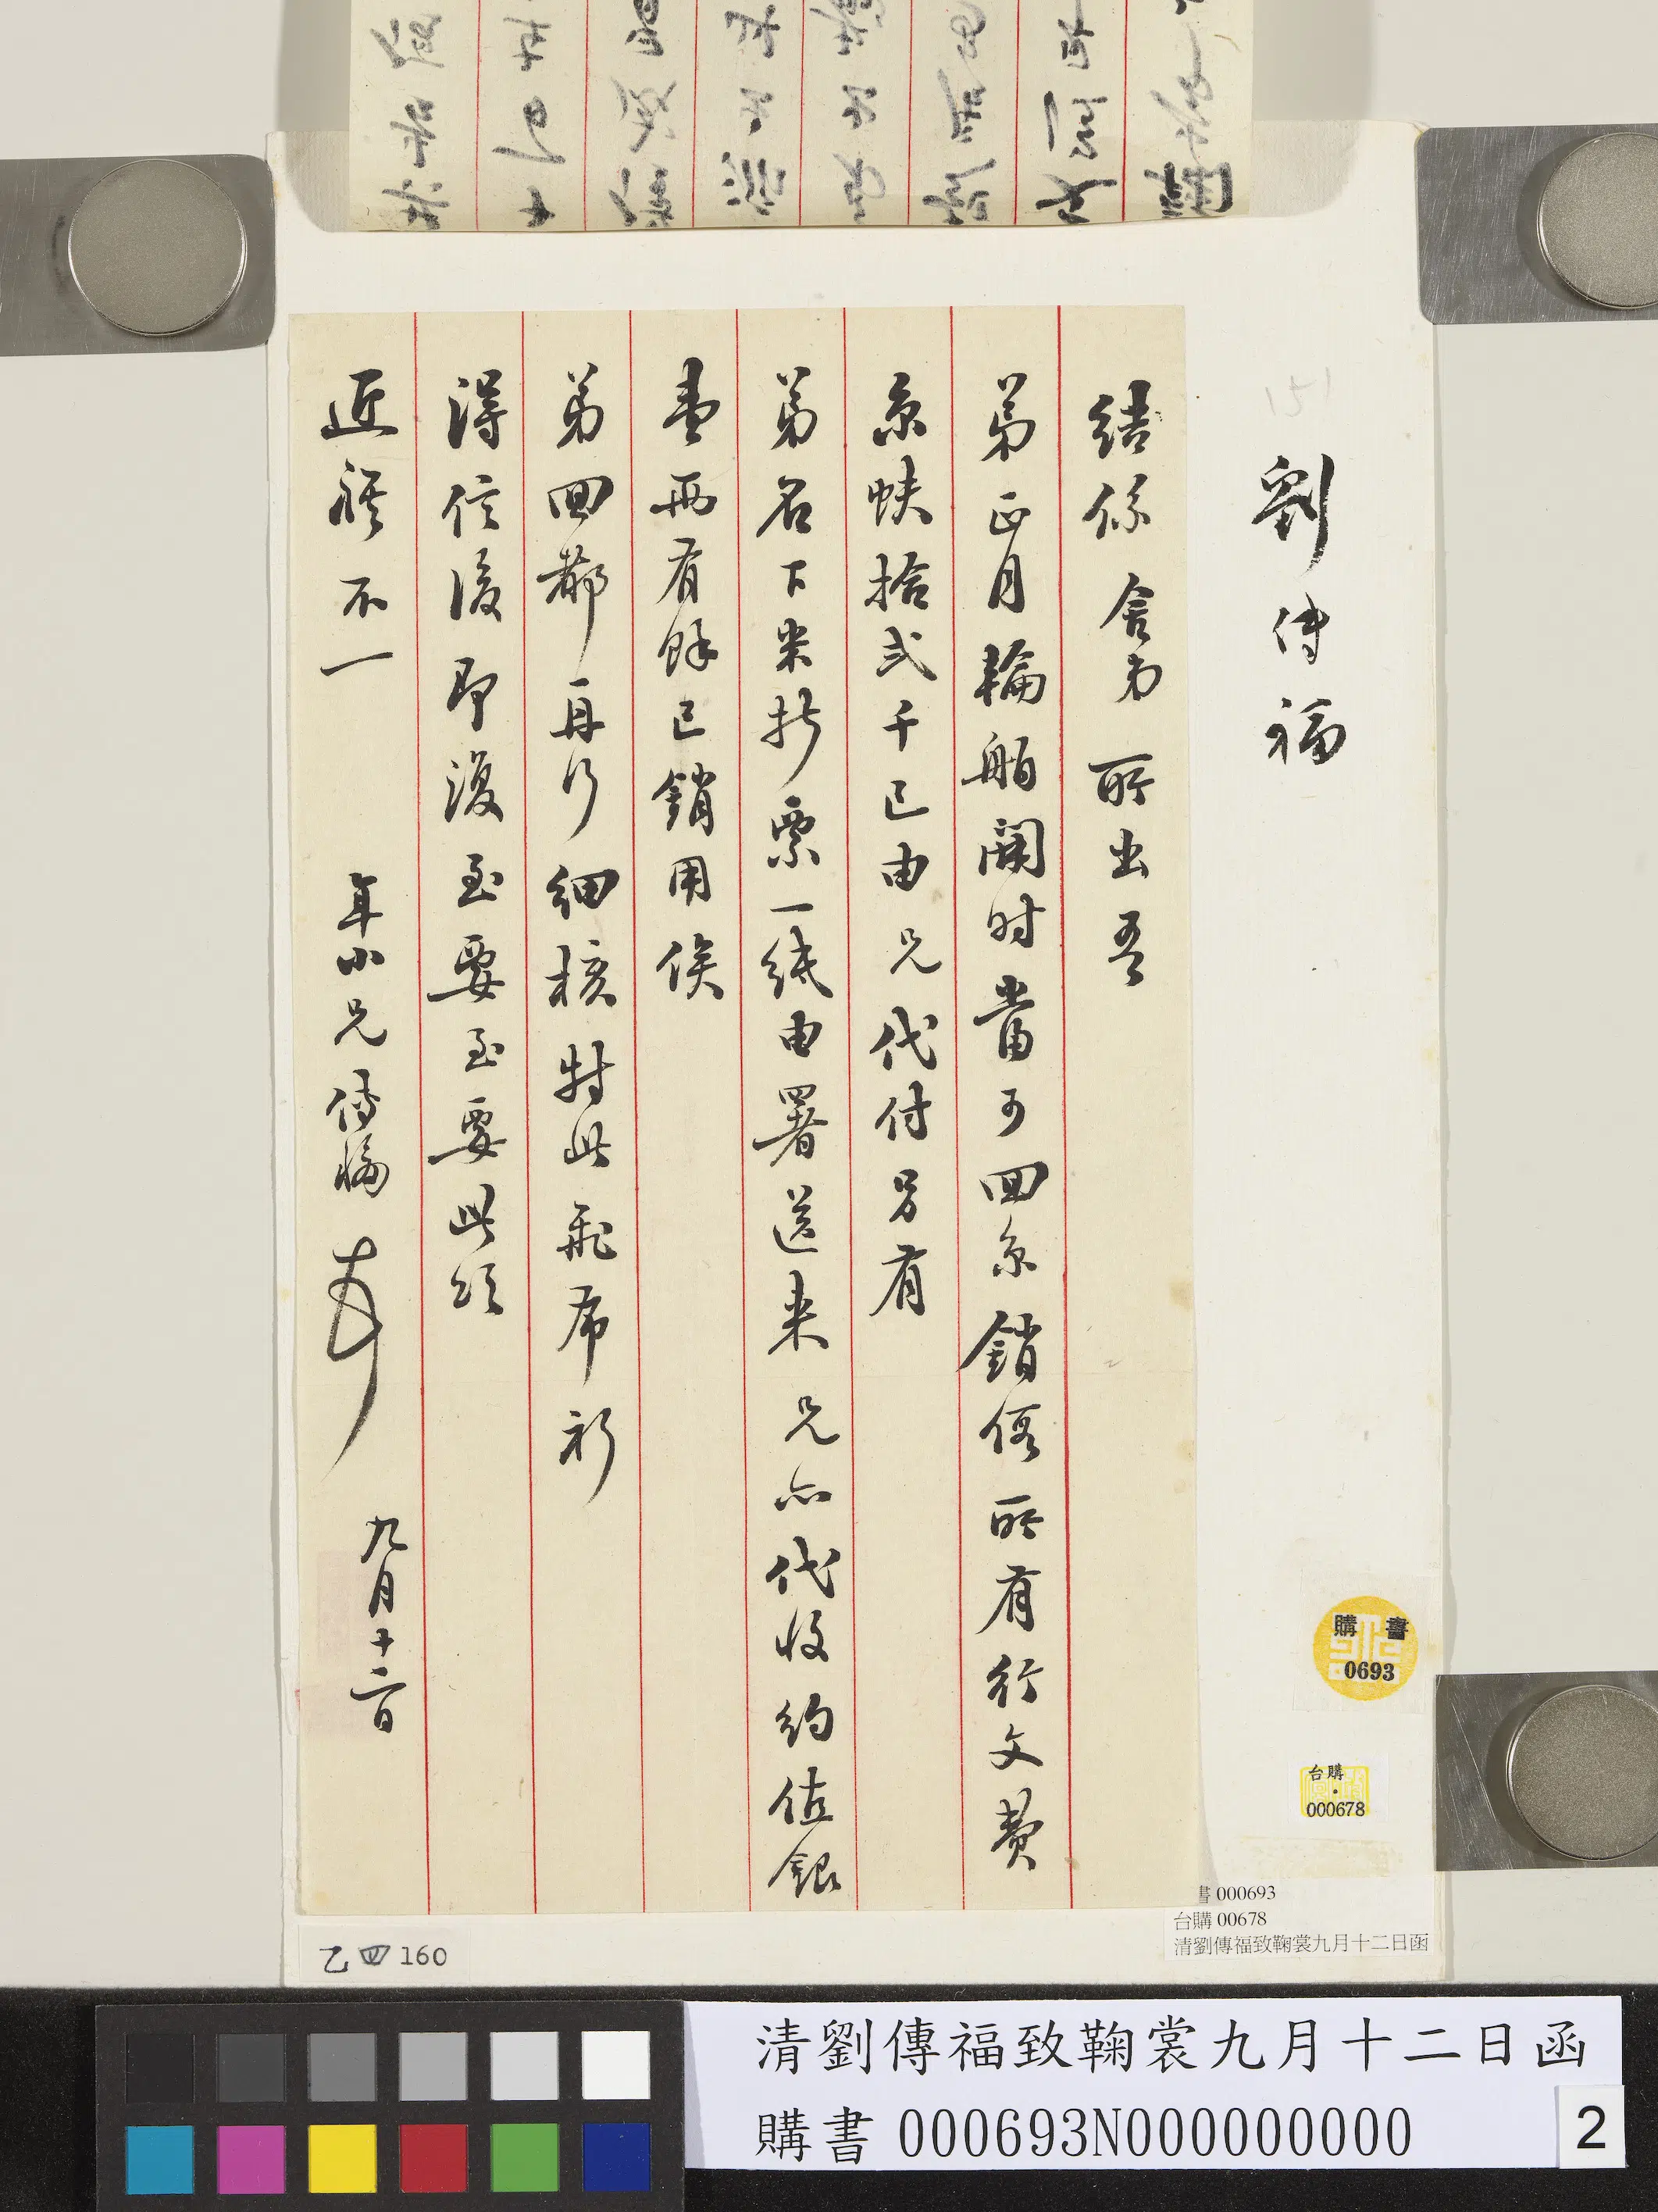 劉傳福
結係舍弟所出吾
弟正月輪船開時當可回京銷假所有行文費
京蚨拾貳千已由兄代付另有
弟名下米折票一紙由署送來兄亦代收約值銀
壹兩有餘已銷用俟
弟回都再行細核特此飛布祈
得信後即復至要至要此頌
近祺不一
年小兄傳福
九月十二日
購書
0693
台購
000678
書000693
台購00678
清劉傳福致鞠裳九月十二日函
乙四160
清劉傳福致鞠裳九月十二日函
購書000693N000000000
2